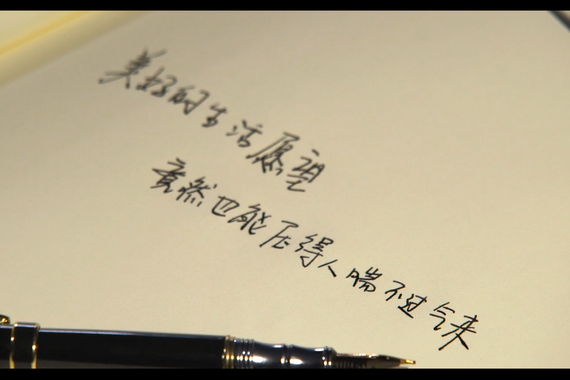 美好的生活愿望
竟然也能压得人喘不过气来